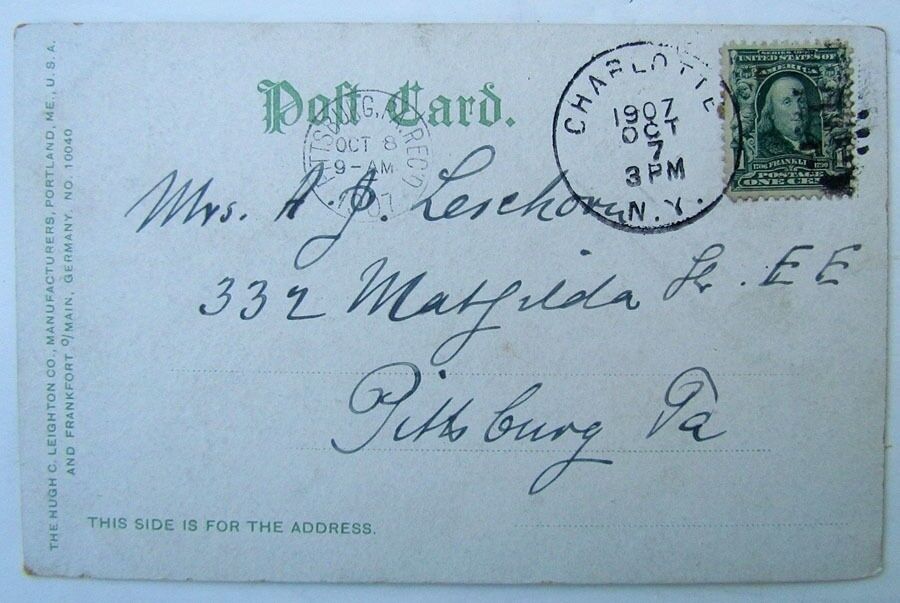 Post Card.
THE HUGH C. LEIGHTON CO., MANUFACTURERS, PORTLAND, ME., U.S.A.
AND FRANKFORT o/MAIN, GERMANY, NO. 10040
CHARLOTTE
1907
OCT
7
3 PM
N.Y.
SERIES OF
UNITED STATES OF
AMERICA
FRANKLIN
POSTAGE
ONE CENT
OCT 8
9-AM
REC'D
Mrs. A. J.
332 Mathilda St. EE
Pittsburg Pa
THIS SIDE IS FOR THE ADDRESS.